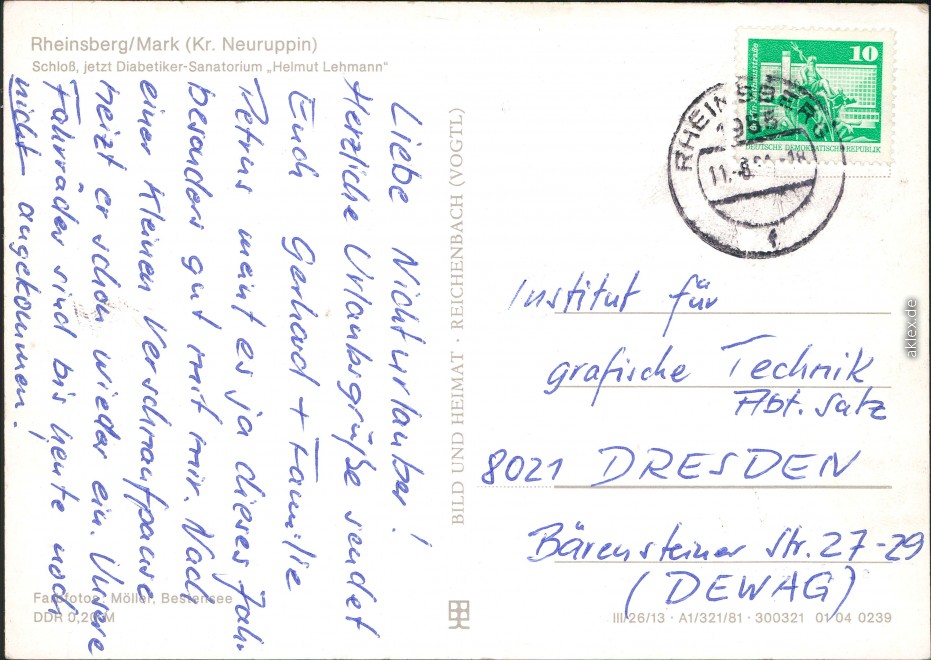 Rheinsberg/Mark (Kr. Neuruppin)
Schloß, jetzt Diabetiker-Sanatorium „Helmut Lehmann“
Liebe Nichturlauber!
Herzliche Urlaubsgrüße sendet
Euch Gerhard + Familie
Petrus meint es ja dieses Jahr
besonders gut mit mir. Nach
einer kleinen Verschnaufpause
heizt er schon wieder ein. Unsere
Fahrräder sind bis heute noch
nicht angekommen.
Farbfotos: Möller, Bestensee
DDR 0,20 M
BILD UND HEIMAT · REICHENBACH (VOGTL)
10
DEUTSCHE DEMOKRATISCHE REPUBLIK
RHEINSBERG
1955
11.-8.
f
Institut für
grafische Technik
Abt. Satz
8021 DRESDEN
Bärensteiner Str. 27-29
(DEWAG)
III/26/13 · A1/321/81 · 300321 01 04 0239
aklex.de